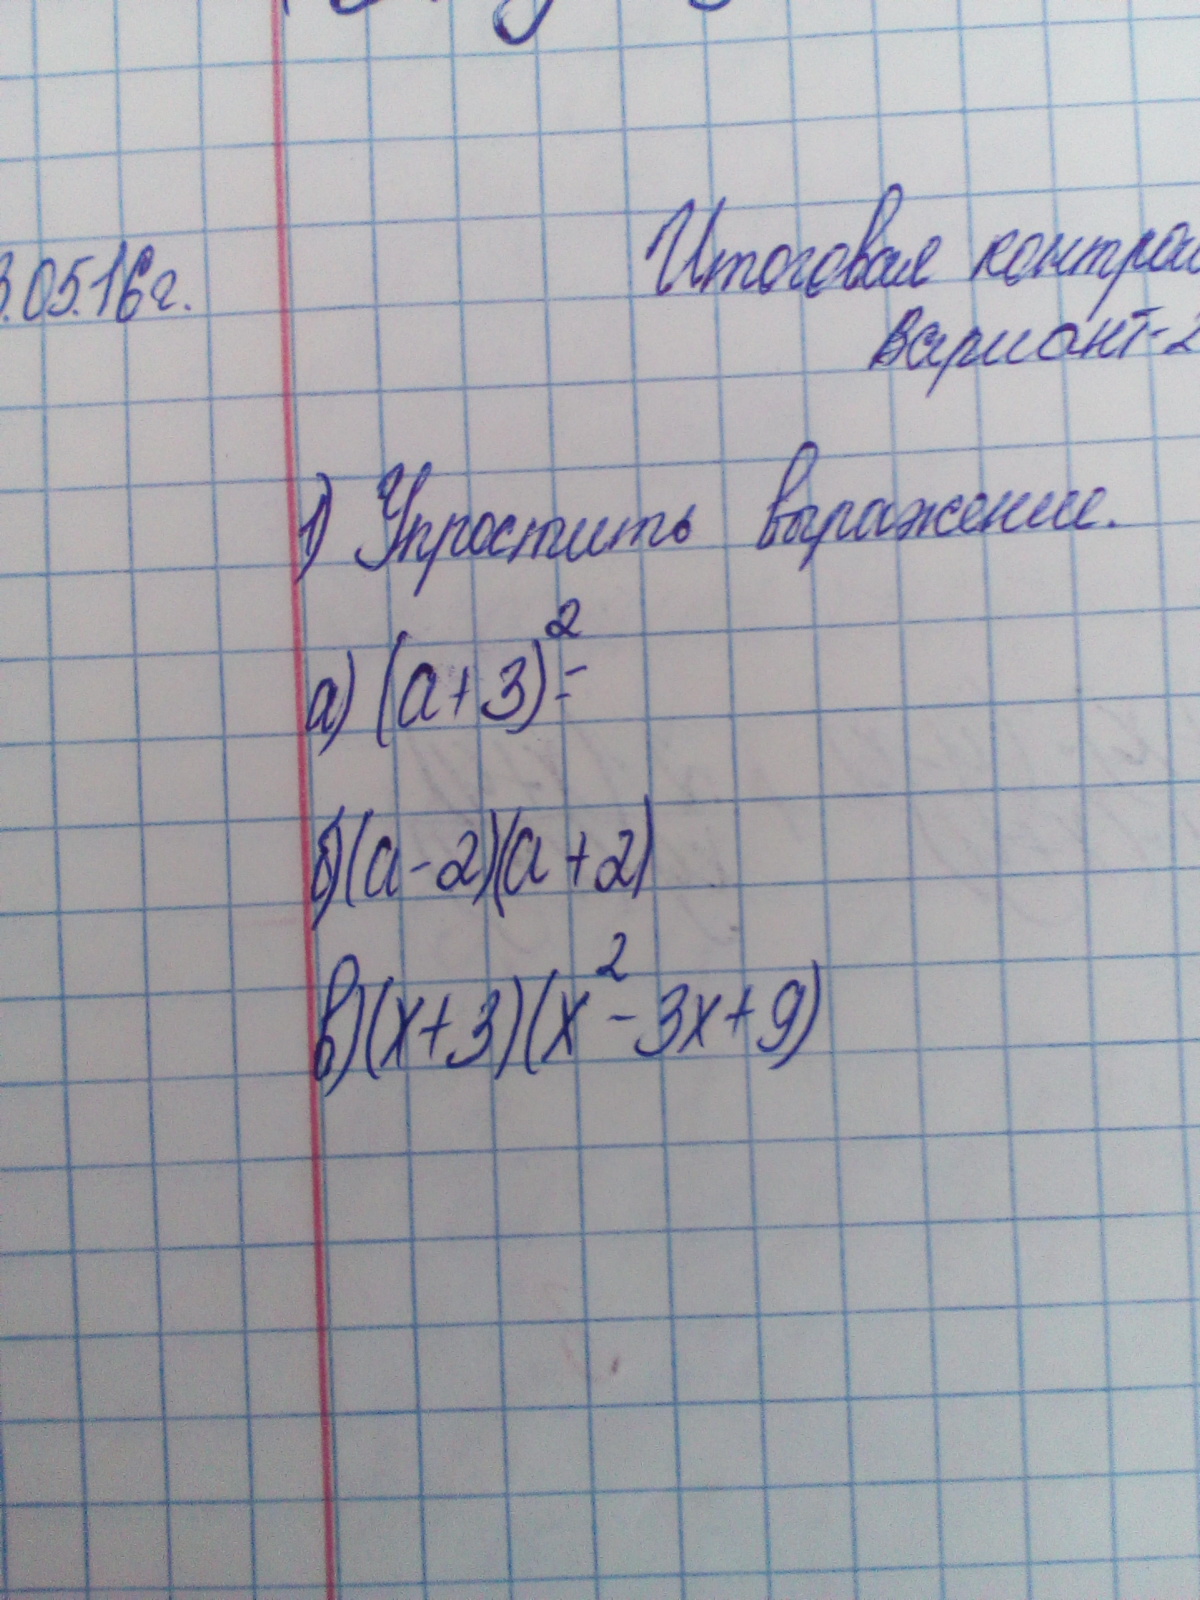 .05.16г.
Итоговая контрол
Вариант-2
1) Упростить выражение.
а) (a+3)²=
б) (a-2)(a+2)
в) (x+3)(x²-3x+9)